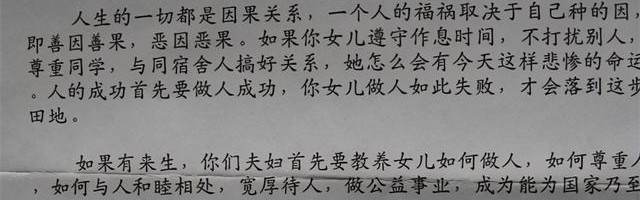 人生的一切都是因果关系，一个人的福祸取决于自己种的因，
即善因善果，恶因恶果。如果你女儿遵守作息时间，不打扰别人，
尊重同学，与同宿舍人搞好关系，她怎么会有今天这样悲惨的命运
。人的成功首先要做人成功，你女儿做人如此失败，才会落到这步
田地。
如果有来生，你们夫妇首先要教养女儿如何做人，如何尊重人
，如何与人和睦相处，宽厚待人，做公益事业，成为能为国家乃至